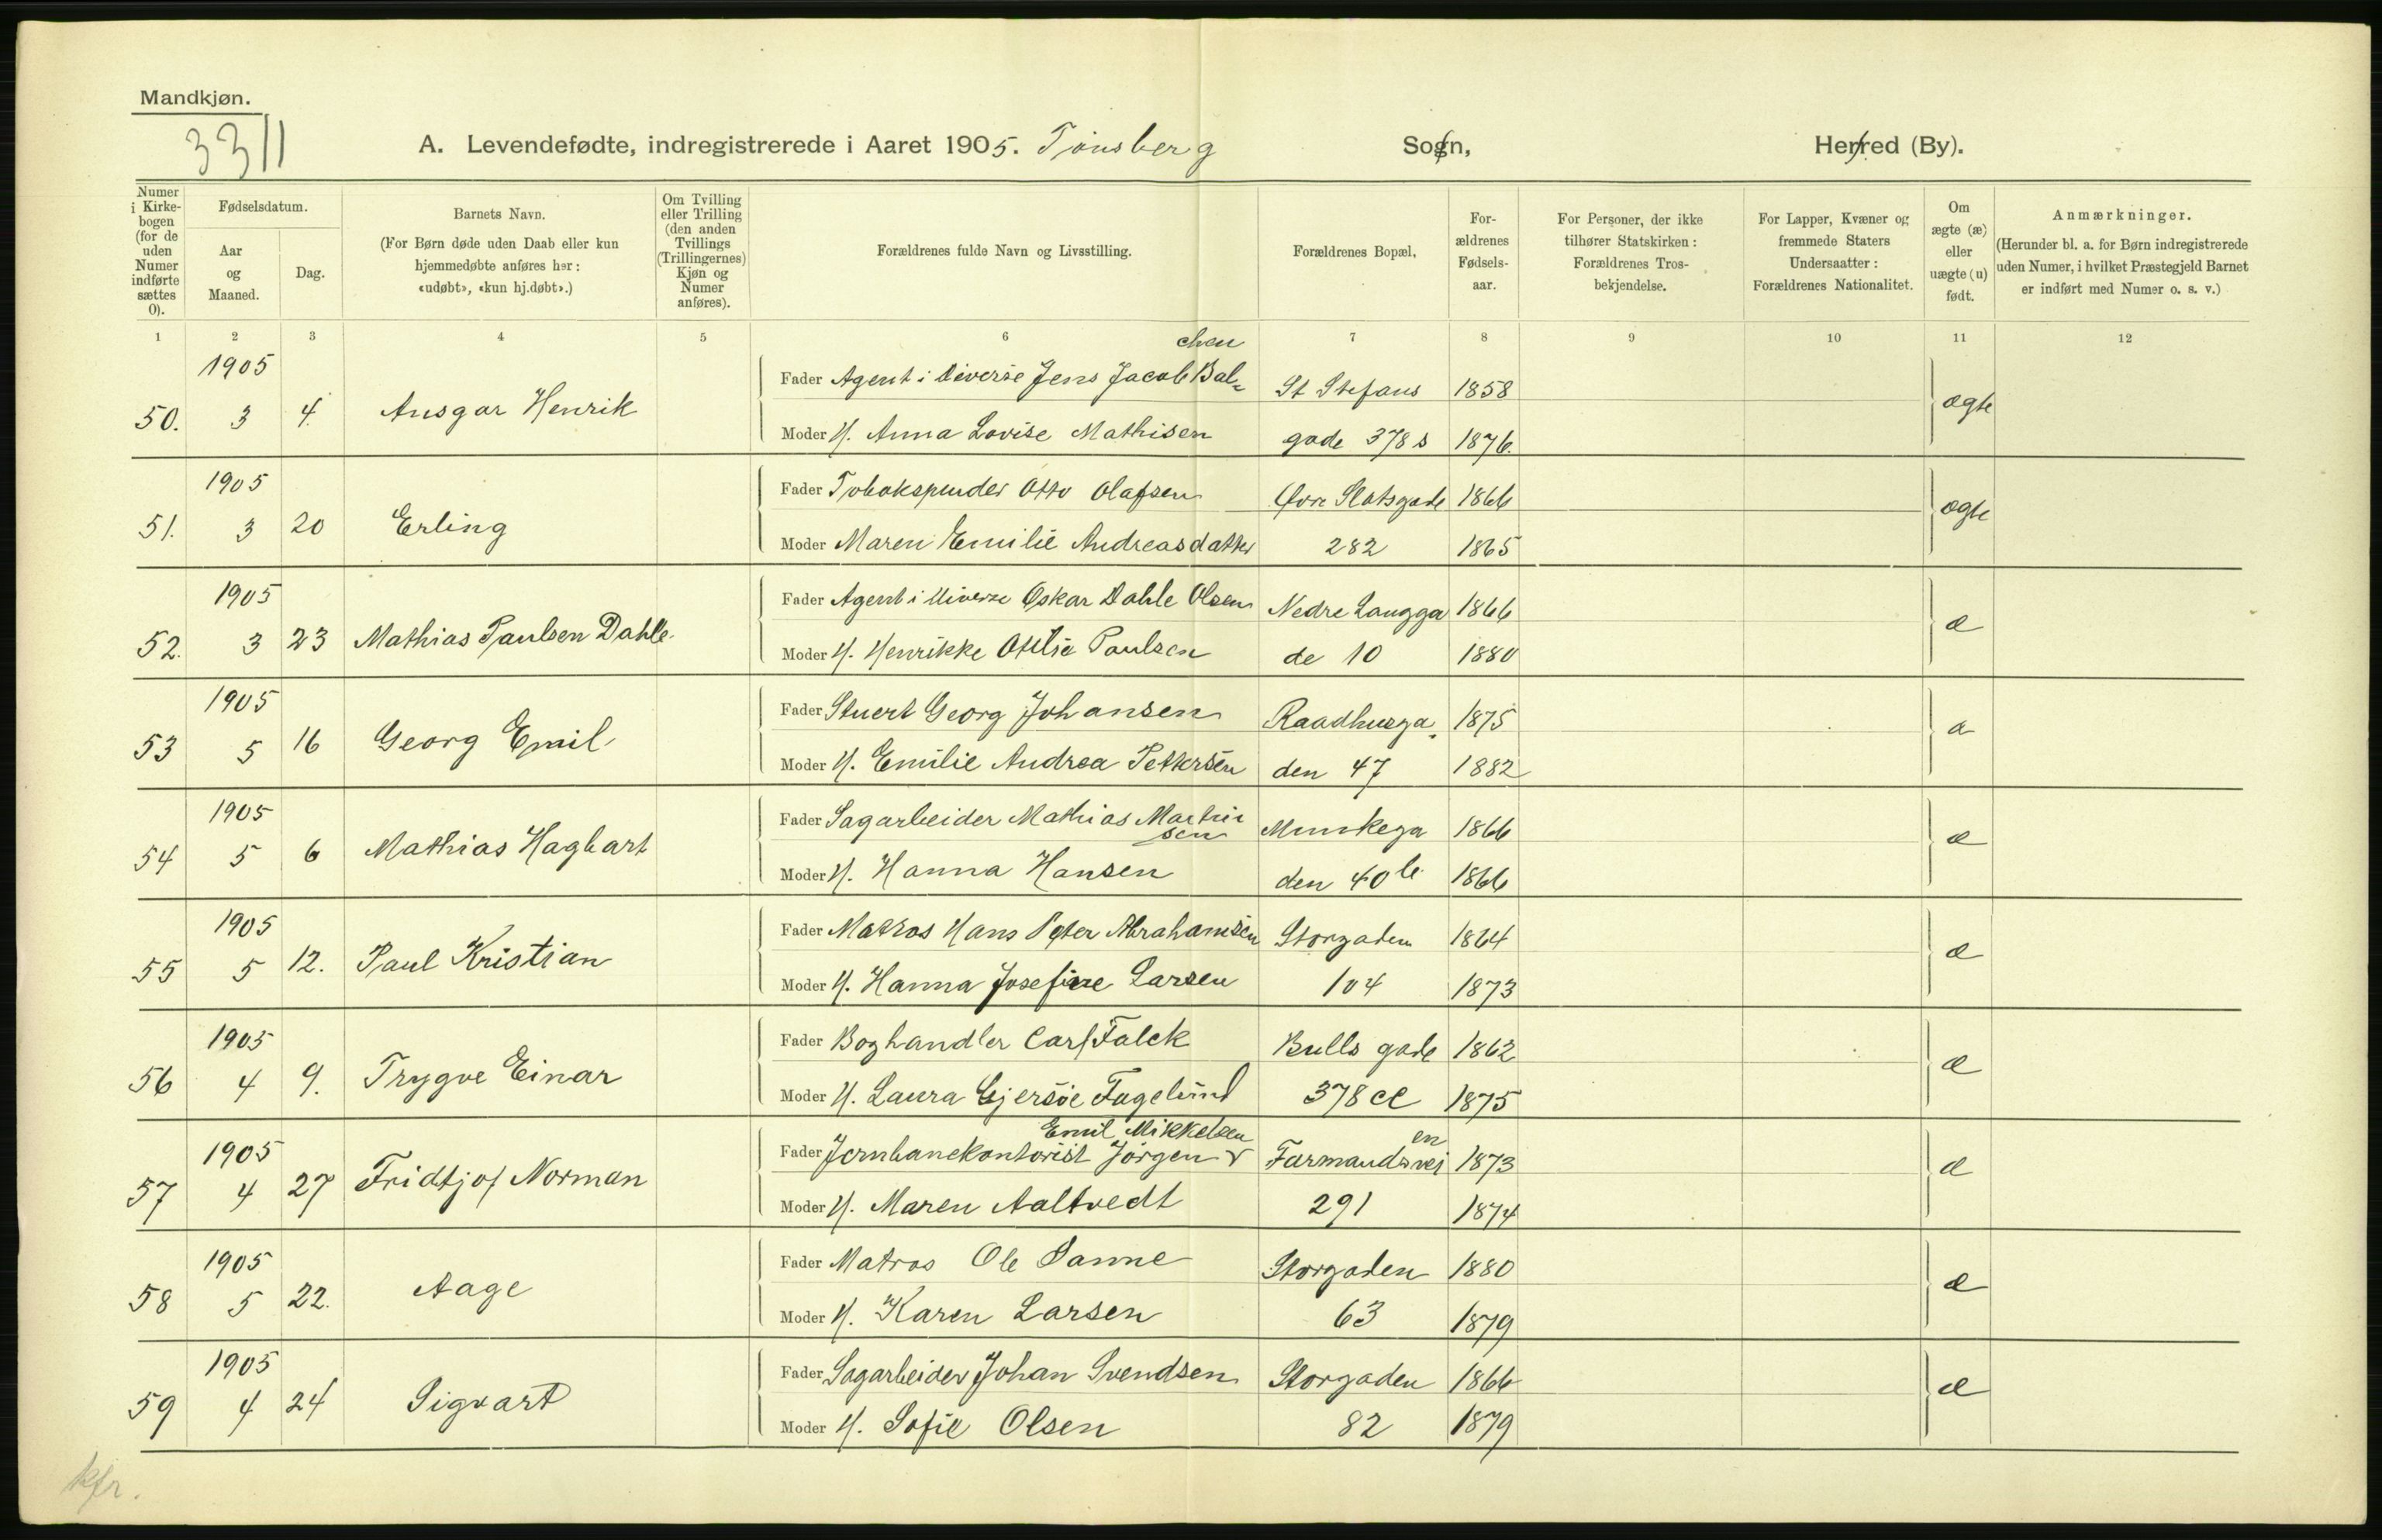 Mandkjøn.
3311
A. Levendefødte, indregistrerede i Aaret 1905. Tönsberg Sogn, Herred (By).
Numer i Kirke-bogen (for de uden Numer indførte sættes 0).
Fødselsdatum.
Aar og Maaned.
Dag.
Barnets Navn.
(For Børn døde uden Daab eller kun hjemmedøbte anføres her: «udøbt», «kun hj.døbt».)
Om Tvilling eller Trilling (den anden Tvillings (Trillingernes) Kjøn og Numer anføres).
Forældrenes fulde Navn og Livsstilling.
Forældrenes Bopæl,
For-ældrenes Fødsels-aar.
For Personer, der ikke tilhører Statskirken: Forældrenes Tros-bekjendelse.
For Lapper, Kvæner og fremmede Staters Undersaatter: Forældrenes Nationalitet.
Om ægte (æ) eller uægte (u) født.
Anmærkninger.
(Herunder bl. a. for Børn indregistrerede uden Numer, i hvilket Præstegjeld Barnet er indført med Numer o. s. v.)
1 2 3 4 5 6 7 8 9 10 11 12
1905
50. 3 4. Ansgar Henrik
Fader Agent i Diverse Jens Jacob Bal-chen St Stefans 1858 ægte
Moder H. Anna Lovise Mathisen gade 378 s 1876.
1905
51. 3 20 Erling
Fader Tobakspinder Otto Olafsen Øvre Slotsgade 1866 ægte
Moder Maren Emilie Andreasdatter 282 1865
1905
52. 3 23 Mathias Paulsen Dahle
Fader Agent i Diverse Oskar Dahle Olsen Nedre Langga 1866 æ
Moder H. Henrikke Otilie Paulsen de 10 1880
1905
53 5 16 Georg Emil
Fader Stuert Georg Johansen Raadhusga- 1875 æ
Moder H. Emilie Andrea Pettersen den 47 1882
1905
54 5 6 Mathias Hagbart
Fader Sagarbeider Mathias Mathisen Munkega 1866 æ
Moder H. Hanna Hansen den 40 b 1866
1905
55 5 12. Paul Kristian
Fader Matros Hans Peter Abrahamsen Storgaden 1864 æ
Moder H. Hanna Josefine Larsen 104 1873
1905
56 4 9. Trygve Einar
Fader Boghandler Carl Falck Bulls gade 1862 æ
Moder H. Laura Gjersöe Fagelund 378 cc 1875
1905
57 4 27 Fridtjof Norman
Fader Jernbanekontorist Jörgen Emil Mikkelsen Farmandsveien 1873 æ
Moder H. Maren Aaltvedt 291 1874
1905
58 5 22. Aage
Fader Matros Ole Sanne Storgaden 1880 æ
Moder H. Karen Larsen 63 1879
1905
59 4 24 Sigvart
Fader Sagarbeider Johan Svendsen Storgaden 1866 æ
Moder H. Sofie Olsen 82 1879
kfr.